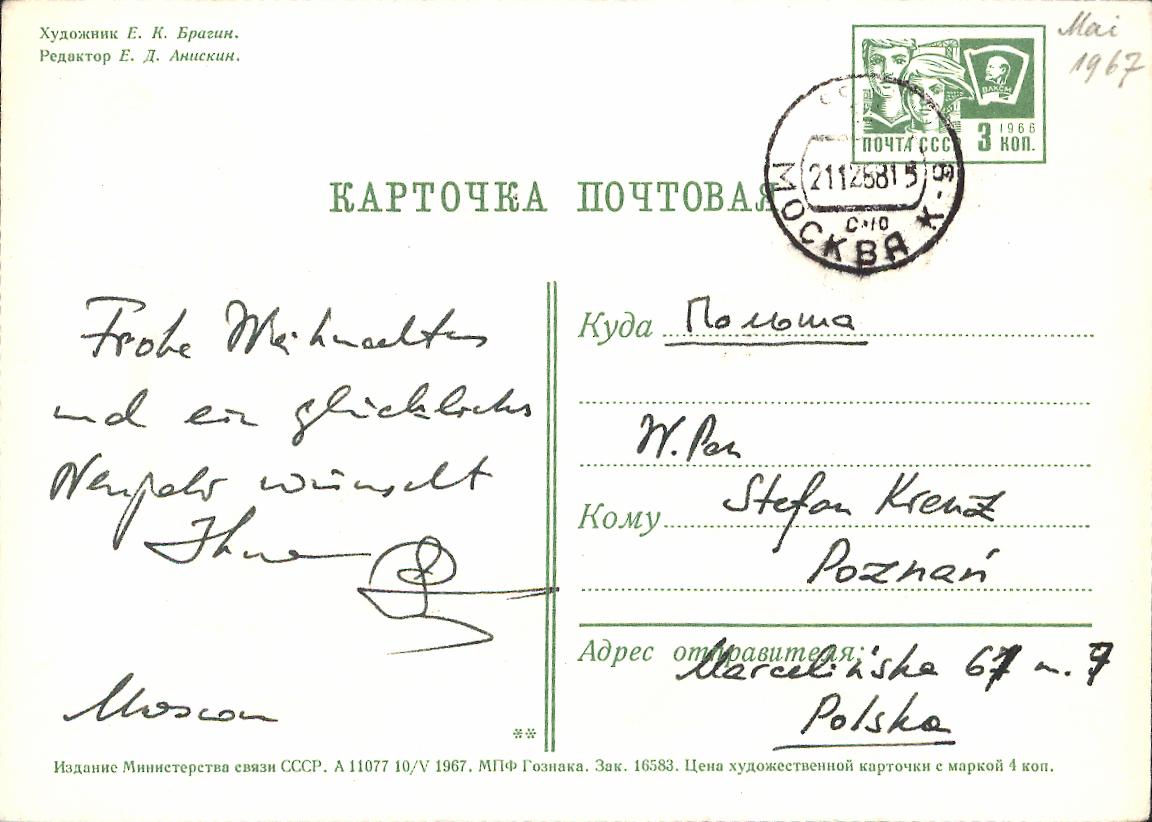 Художник Е. К. Брагин.
Редактор Е. Д. Анискин.
Mai
1967
ВЛКСМ
ПОЧТА СССР 3 1966 КОП.
МОСКВА К-9
21126815
КАРТОЧКА ПОЧТОВАЯ
Frohe Weihnachten
und ein glückliches
Neujahr wünscht
Ihnen
Moscow
Куда Польша
W. Pan
Stefan Krenz
Кому
Poznań
Адрес отправителя:
Marcelińska 67 m. 7
Polska
**
Издание Министерства связи СССР. А 11077 10/V 1967. МПФ Гознака. Зак. 16583. Цена художественной карточки с маркой 4 коп.